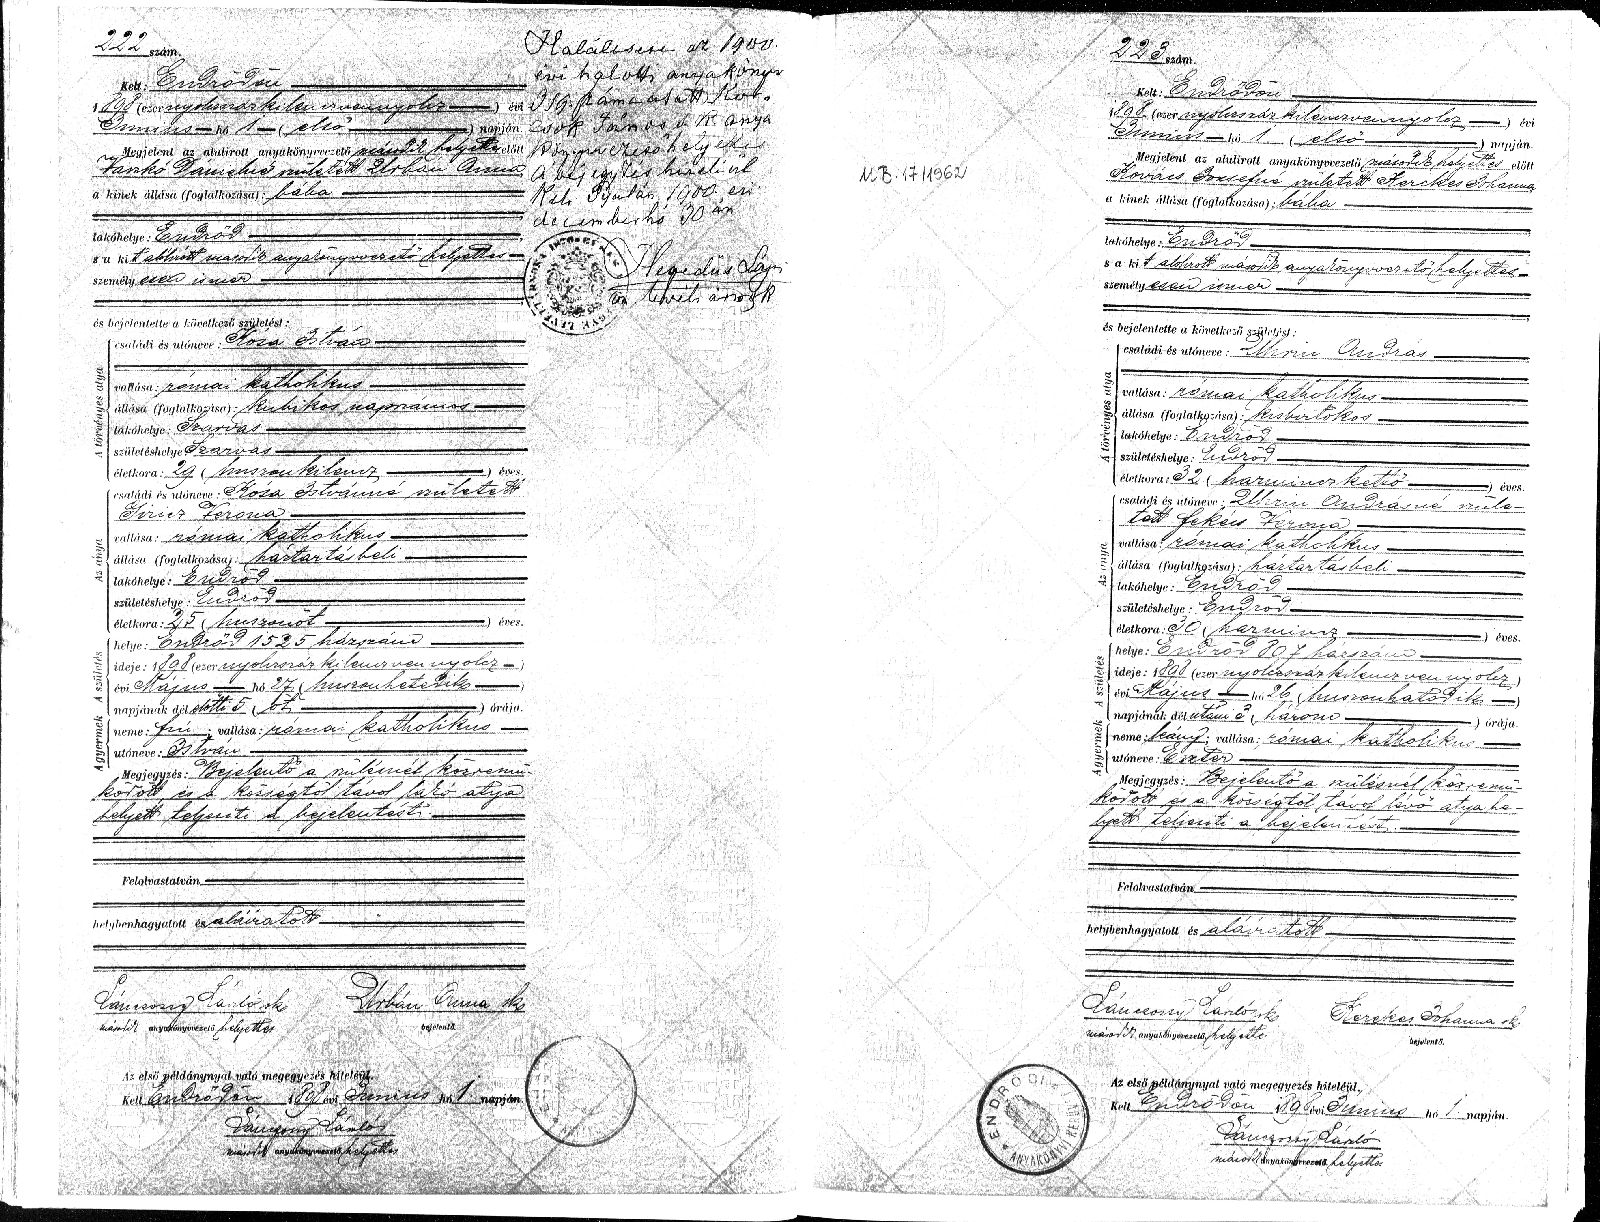 222 szám.
Kelt: Endrődön
1898 (ezernyolczszázkilenczvennyolcz) évi
Junius hó 1 (első) napján.
Megjelent az alulirott anyakönyvezető másodk helyettes előtt
Dánielné született Urbán Anna,
a kinek állása (foglalkozása): bába
lakóhelye: Endrőd
s a kit alulirott másodk anyakönyvvezető helyettes
személyesen ismer
és bejelentette a következő születést:
A törvényes atya
családi és utóneve: Kósa István
vallása: római katholikus
állása (foglalkozása): kubikos napszámos
lakóhelye: Szarvas
születéshelye Szarvas
életkora: 29 (huszonkilencz) éves.
Az anya
családi és utóneve: Kósa Istvánné született
Giricz Verona
vallása: római katholikus
állása (foglalkozása): háztartásbeli
lakóhelye: Endrőd
születéshelye: Endrőd
életkora: 25 (huszonöt) éves.
A születés
helye: Endrőd 1525 házszám
ideje: 1898 (ezernyolczszázkilenczvennyolcz)
évi Május hó 27 (huszonhetedik)
napjának dél előtti 5 (öt) órája.
A gyermek
neme: fiú; vallása: római katholikus
utóneve: István
Megjegyzés: Bejelentő a szülésnél közremű-
ködött és a községtől távol lakó atya
helyett teljesiti a bejelentést.
Felolvastatván
helybenhagyatott és aláiratott
Lánczossy László sk
másodk anyakönyvvezető helyettes
Urbán Anna sk
bejelentő.
Az első példánynyal való megegyezés hiteléül.
Kelt Endrődön 1898 évi Junius hó 1 napján.
Lánczossy László
másodk anyakönyvvezető helyettes
Halálesete az 1900.
évi halotti anyakönyv
319. száma alatt
János s. k. anya
könyvvezető helyettes
A bejegyzés hiteléül
Kelt Gyulán, 1900. évi
december hó 30 án
Hegedűs
levéltárnok
223 szám.
Kelt: Endrődön
1898 (ezernyolczszázkilenczvennyolcz) évi
Junius hó 1 (első) napján.
Megjelent az alulirott anyakönyvvezető másodk helyettes előtt
Kovács Józsefné született Kerekes Johanna
a kinek állása (foglalkozása): bába
lakóhelye: Endrőd
s a kit alulirott másodk anyakönyvvezető helyettes
személyesen ismer
és bejelentette a következő születést:
A törvényes atya
családi és utóneve: Uhrin András
vallása: római katholikus
állása (foglalkozása): kisbirtokos
lakóhelye: Endrőd
születéshelye: Endrőd
életkora: 32 (harminczkettő) éves.
Az anya
családi és utóneve: Uhrin Andrásné szüle-
tett Fekécs Verona
vallása: római katholikus
állása (foglalkozása): háztartásbeli
lakóhelye: Endrőd
születéshelye: Endrőd
életkora: 30 (harmincz) éves.
A születés
helye: Endrőd 807 házszám
ideje: 1898 (ezernyolczszázkilenczvennyolcz)
évi Május hó 26 (huszonhatodik)
napjának dél utáni 3 (három) órája.
A gyermek
neme: leány; vallása: római katholikus
utóneve: Eszter
Megjegyzés: Bejelentő a szülésnél közremű-
ködött és a községtől távol lévő atya he-
lyett teljesiti a bejelentést.
Felolvastatván
helybenhagyatott és aláiratott
Lánczossy László sk
másodk anyakönyvvezető helyettes
Kerekes Johanna sk
bejelentő.
Az első példánynyal való megegyezés hiteléül,
Kelt Endrődön 1898 évi Junius hó 1 napján.
Lánczossy László
másodk anyakönyvvezető helyettes
ENDRŐDI
ANYAKÖNYVI KER
N.B. 17/1962